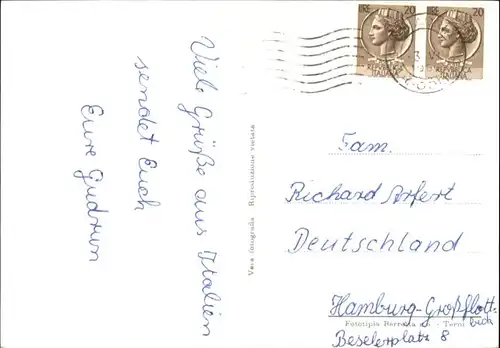 Viele Grüße aus Italien
sendet Euch
Eure Gudrun
Vera fotografia Riproduzione vietata
LIRE 20
REPUBBLICA
ITALIANA
LIRE 20
REPUBBLICA
ITALIANA
Fam.
Richard Arfert
Deutschland
Hamburg-Großflott-
bek
Fototipia - Terni
Beselerplatz 8